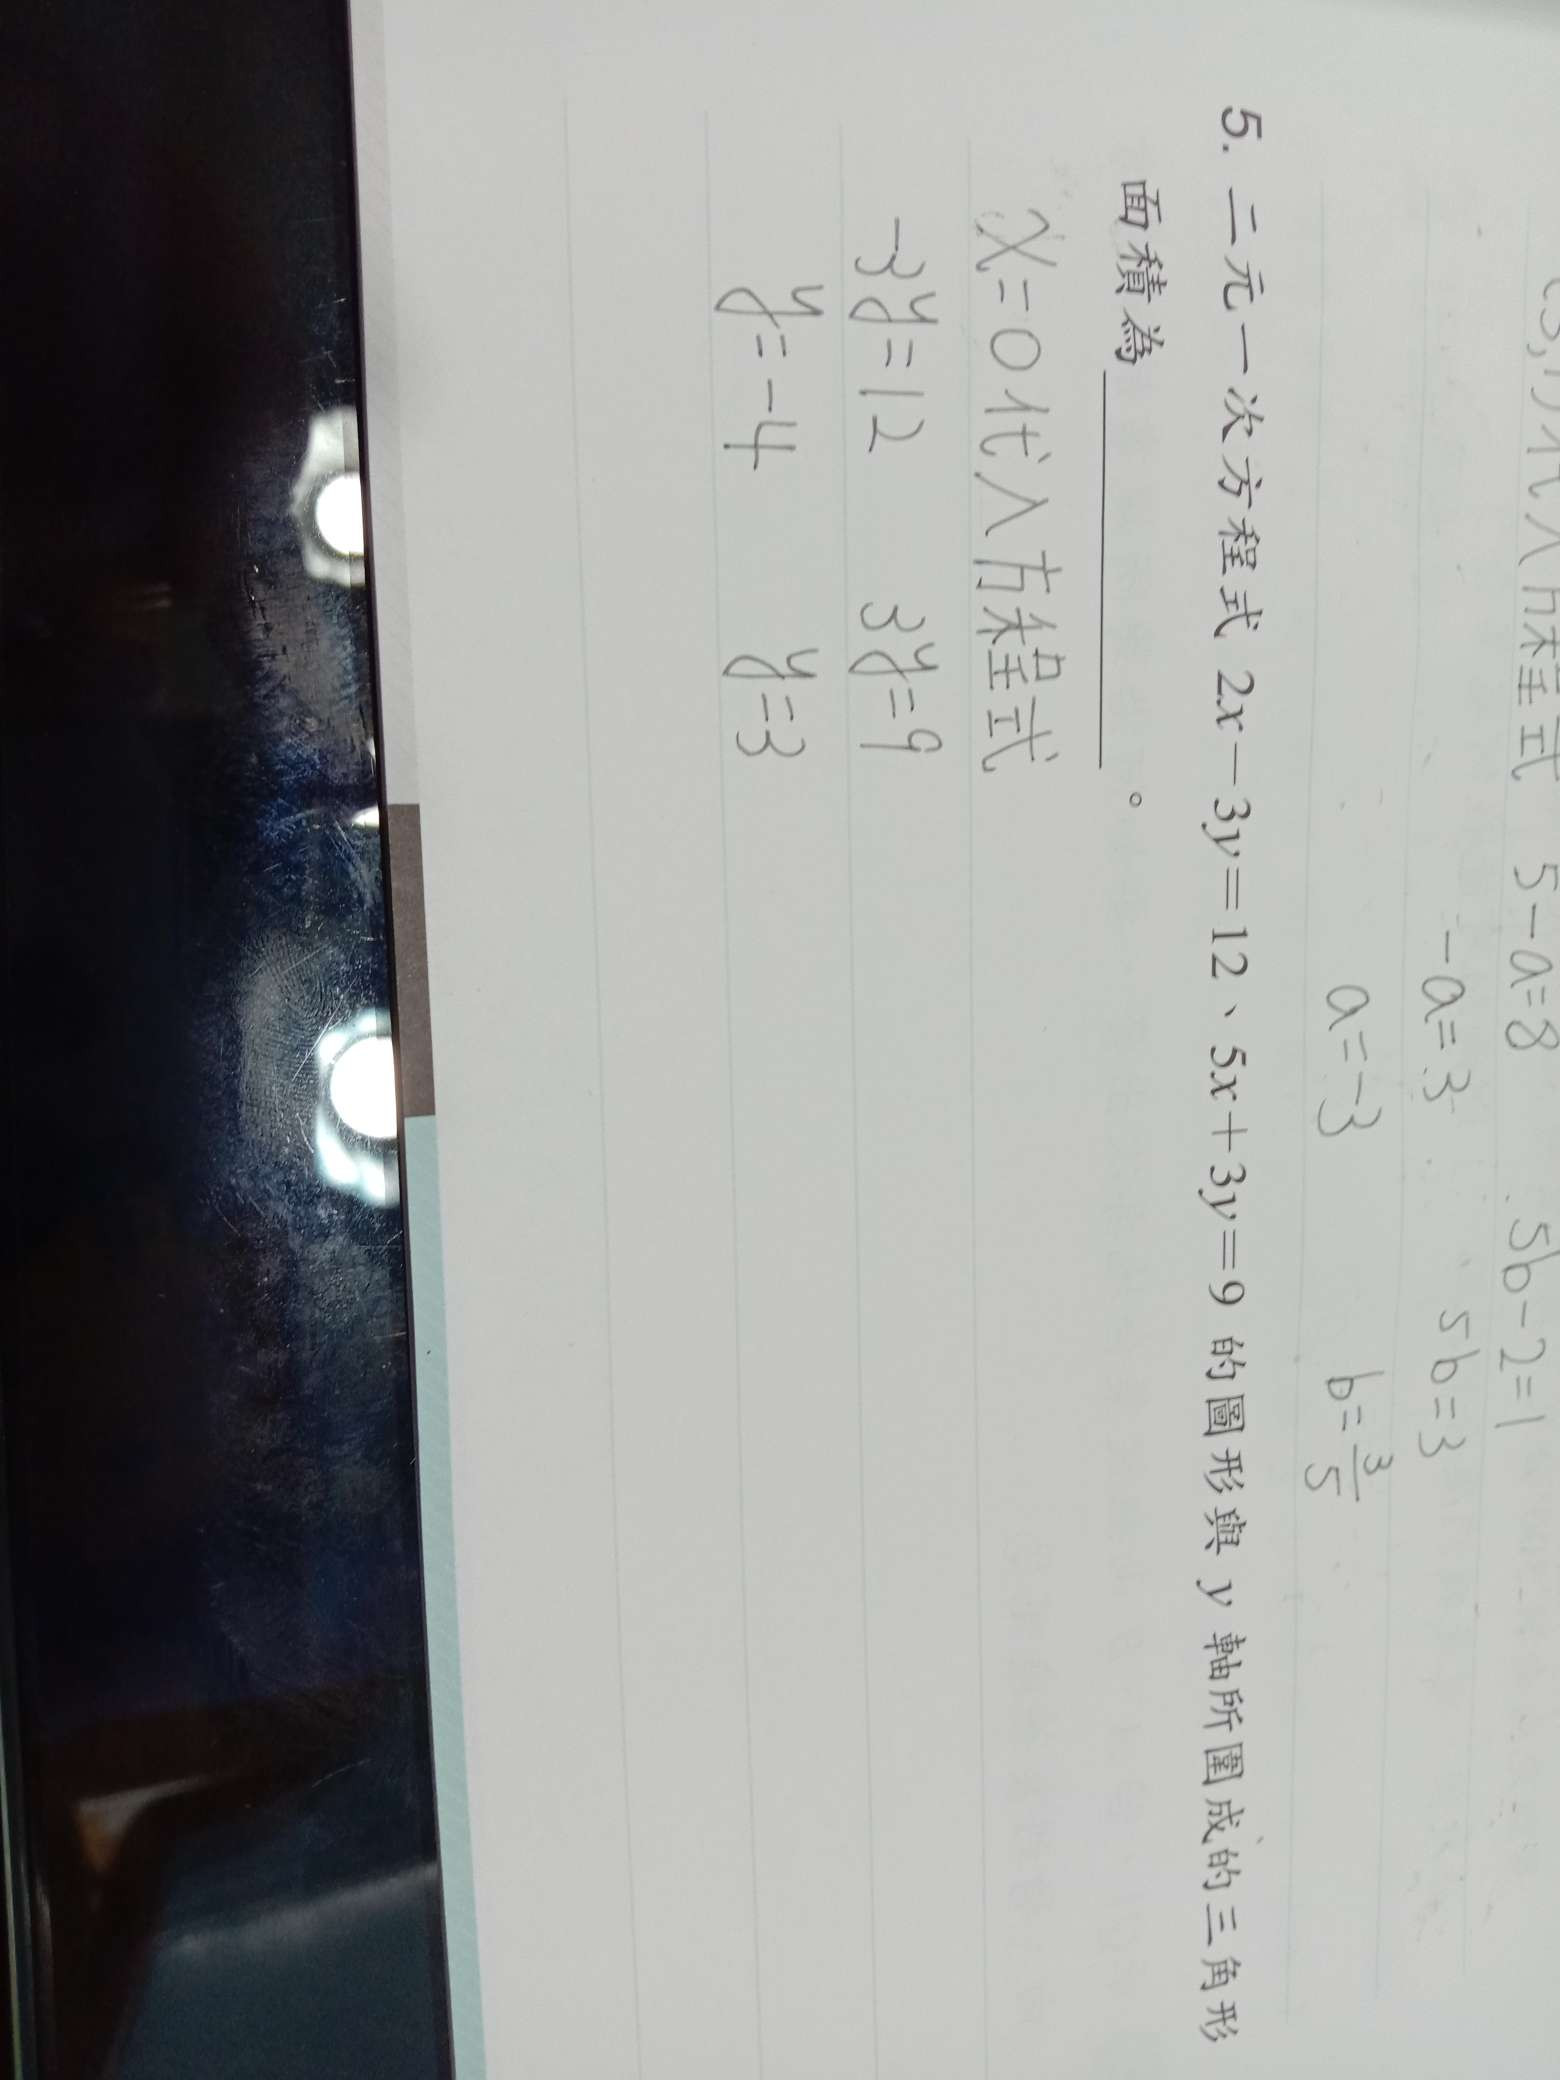 代入方程式 5-a=8 5b-2=1
-a=3 5b=3
a=-3 b=3/5
5. 二元一次方程式 2x-3y=12、5x+3y=9 的圖形與 y 軸所圍成的三角形
面積為＿＿＿＿＿。
x=0代入方程式
-3y=12 3y=9
y=-4 y=3